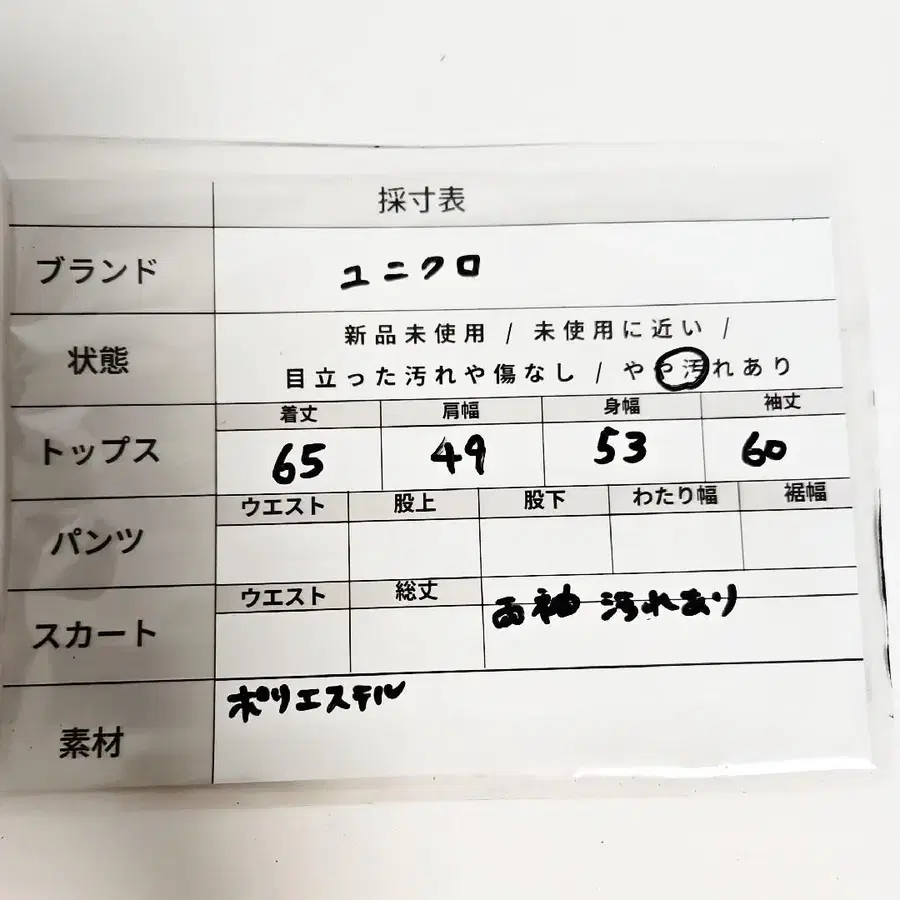 採寸表
ブランド ユニクロ
状態 新品未使用 / 未使用に近い /
目立った汚れや傷なし / やや汚れあり
トップス 着丈 肩幅 身幅 袖丈
65 49 53 60
パンツ ウエスト 股上 股下 わたり幅 裾幅
スカート ウエスト 総丈
両袖 汚れあり
素材 ポリエステル